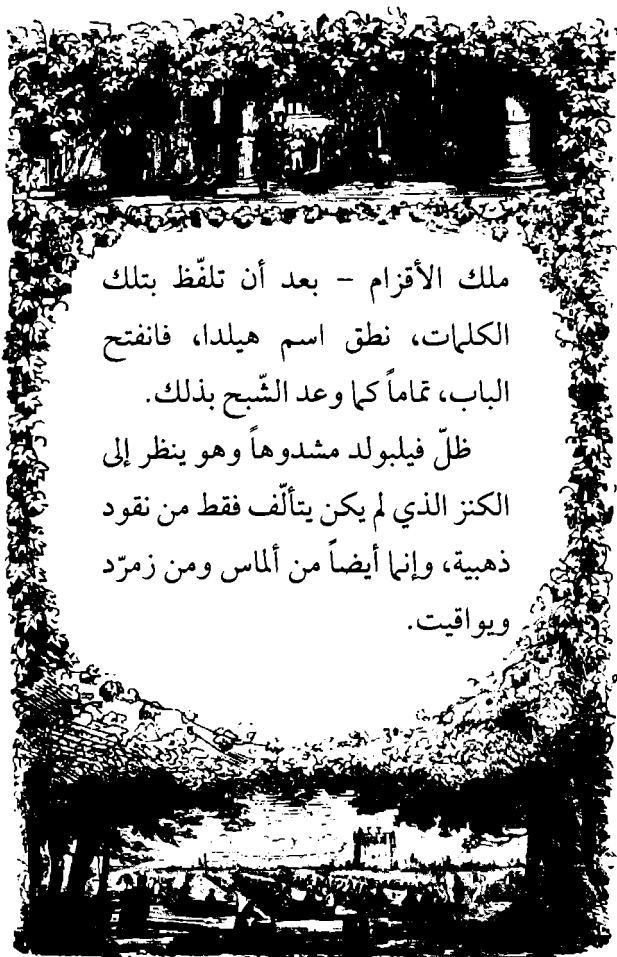 ملك الأقزام – بعد أن تلفّظ بتلك
الكلمات، نطق اسم هيلدا، فانفتح
الباب، تماماً كما وعد الشّبح بذلك.
ظلّ فيلبولد مشدوهاً وهو ينظر إلى
الكنز الذي لم يكن يتألّف فقط من نقود
ذهبية، وإنما أيضاً من ألماس ومن زمرّد
ويواقيت.